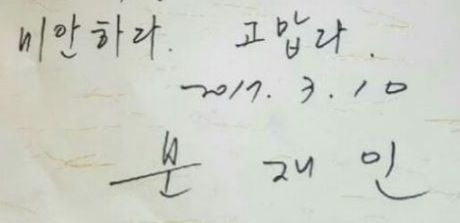 미안하다. 고맙다.
2017. 3. 10
문 재 인